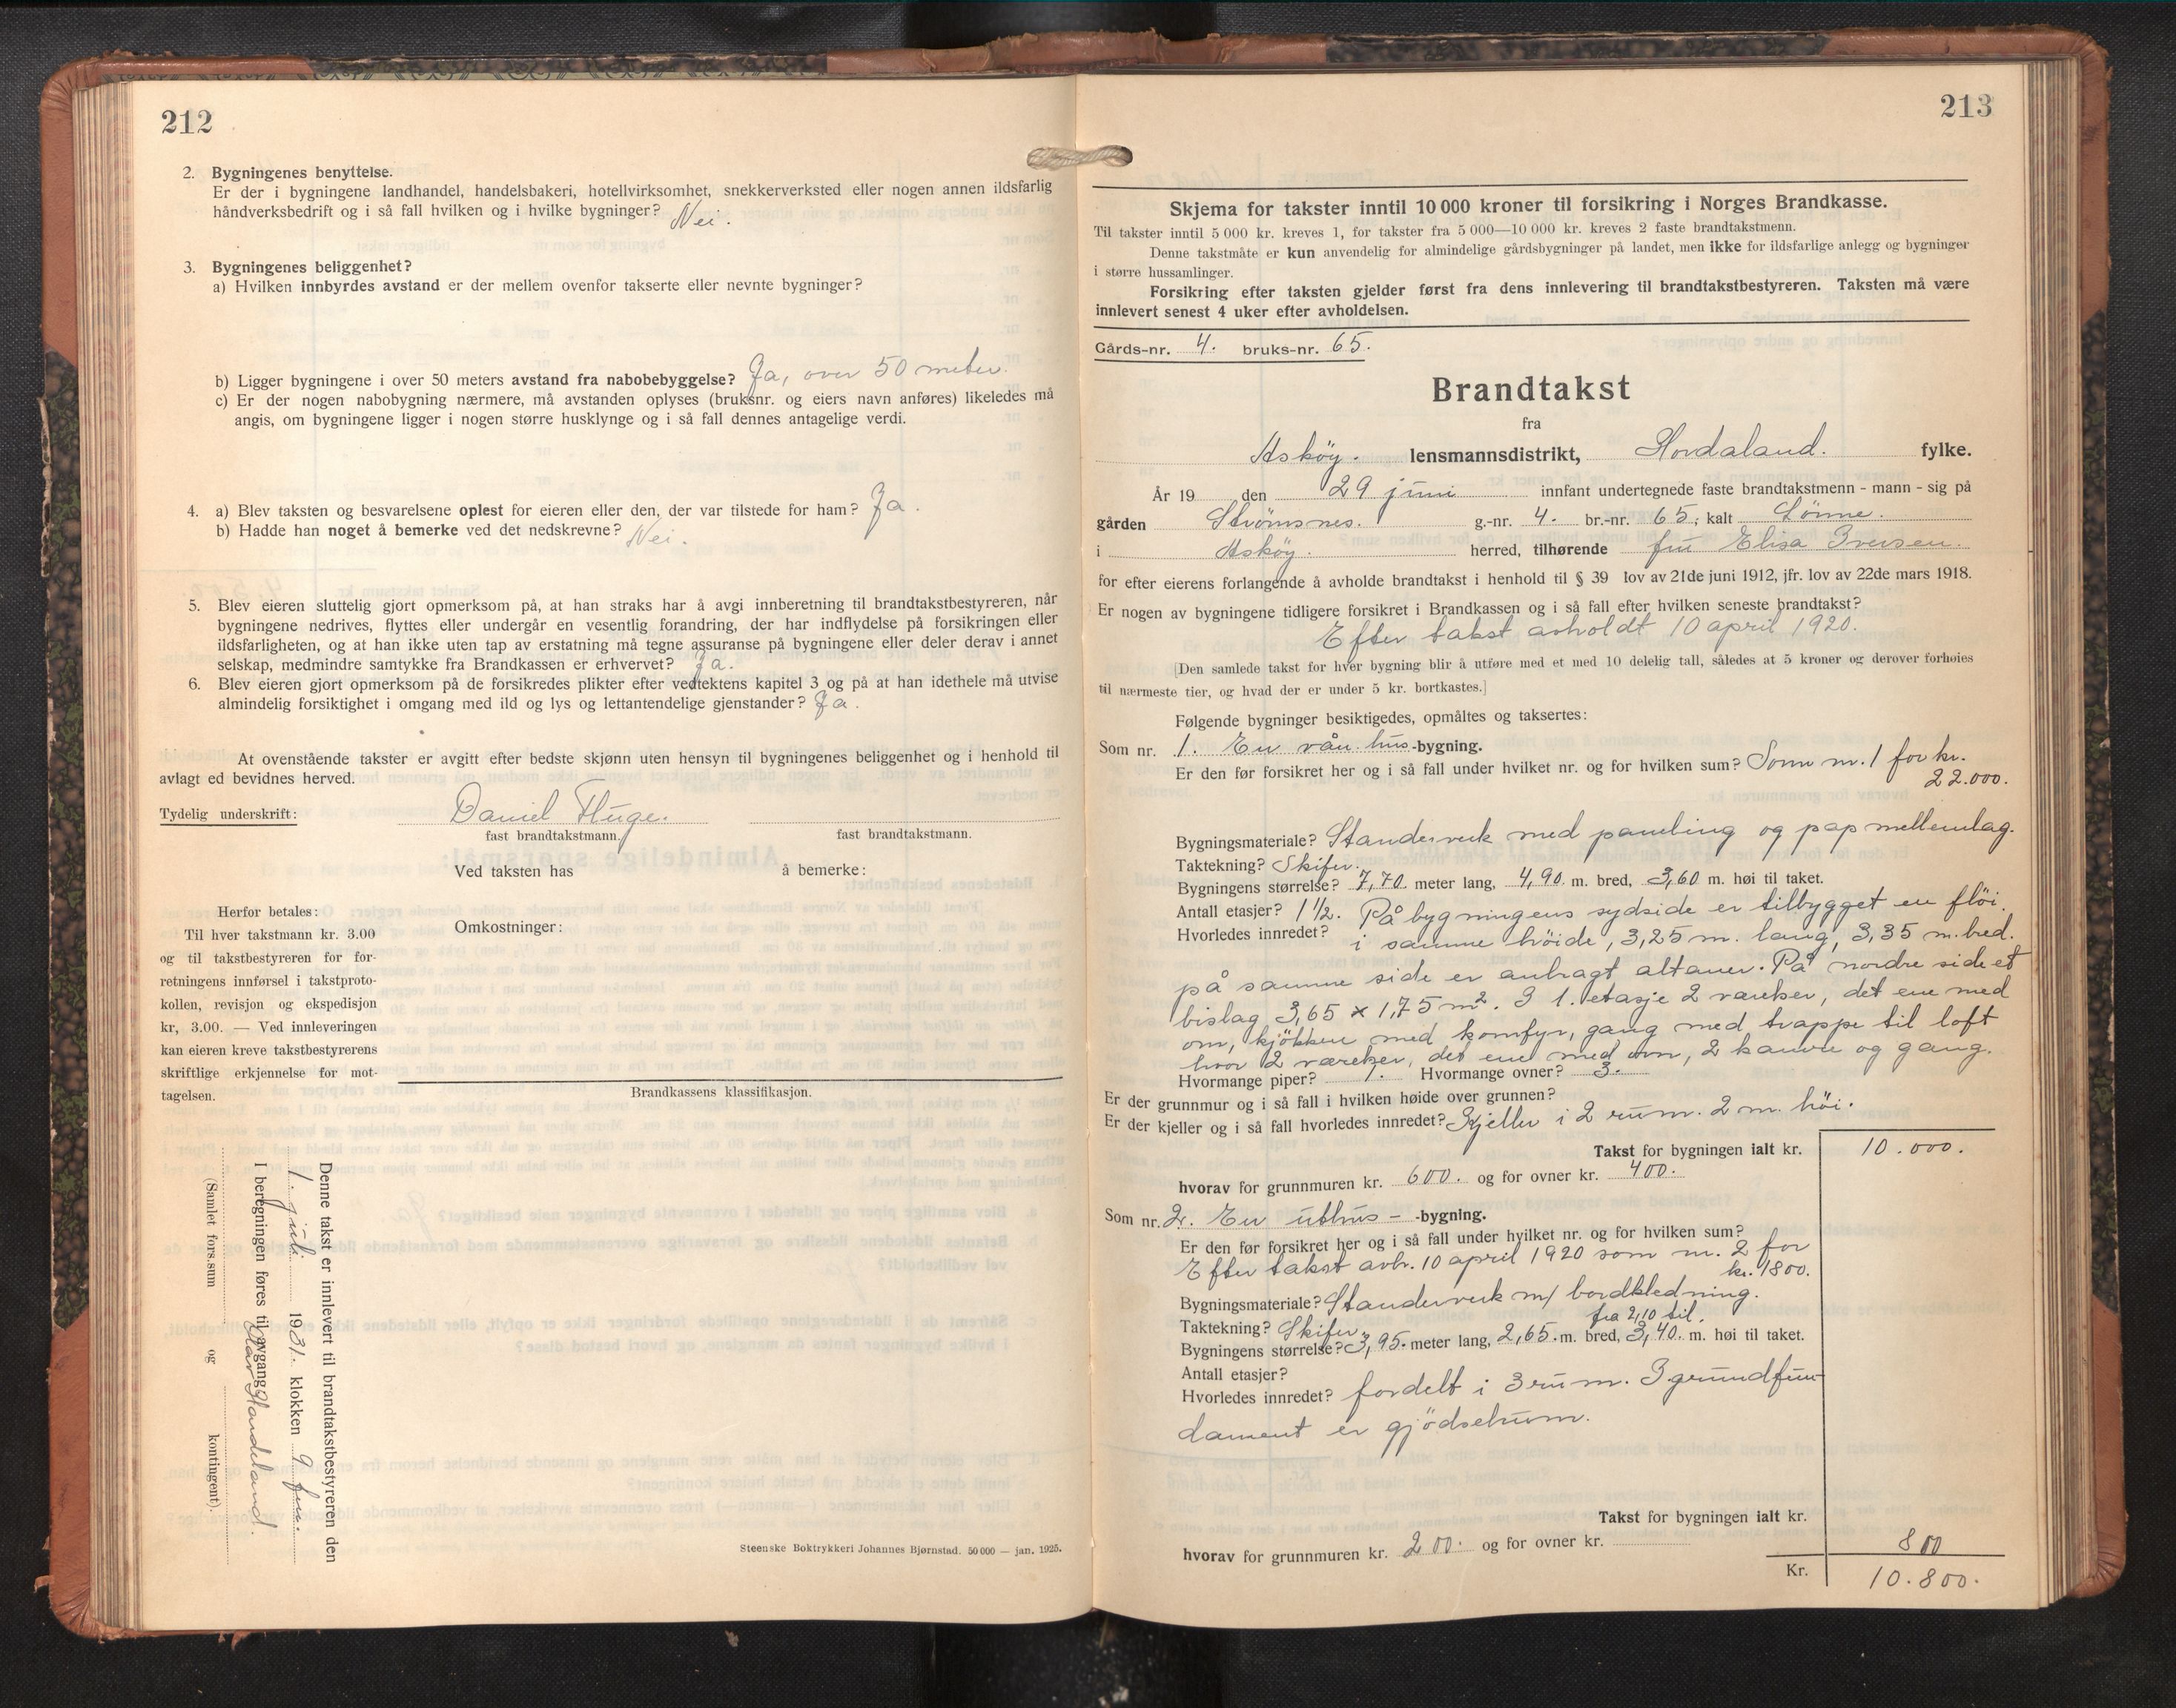 212
2. Bygningenes benyttelse.
Er der i bygningene landhandel, handelsbakeri, hotellvirksomhet, snekkerverksted eller nogen annen ildsfarlig
håndverksbedrift og i så fall hvilken og i hvilke bygninger? Nei.
3. Bygningenes beliggenhet?
a) Hvilken innbyrdes avstand er der mellem ovenfor takserte eller nevnte bygninger?
b) Ligger bygningene i over 50 meters avstand fra nabobebyggelse? Ja, over 50 meter.
c) Er der nogen nabobygning nærmere, må avstanden oplyses (bruksnr. og eiers navn anføres) likeledes må
angis, om bygningene ligger i nogen større husklynge og i så fall dennes antagelige verdi.
4. a) Blev taksten og besvarelsene oplest for eieren eller den, der var tilstede for ham? Ja.
b) Hadde han noget å bemerke ved det nedskrevne? Nei.
5. Blev eieren sluttelig gjort opmerksom på, at han straks har å avgi innberetning til brandtakstbestyreren, når
bygningene nedrives, flyttes eller undergår en vesentlig forandring, der har indflydelse på forsikringen eller
ildsfarligheten, og at han ikke uten tap av erstatning må tegne assuranse på bygningene eller deler derav i annet
selskap, medmindre samtykke fra Brandkassen er erhvervet? Ja.
6. Blev eieren gjort opmerksom på de forsikredes plikter efter vedtektens kapitel 3 og på at han idethele må utvise
almindelig forsiktighet i omgang med ild og lys og lettantendelige gjenstander? Ja.
At ovenstående takster er avgitt efter bedste skjønn uten hensyn til bygningenes beliggenhet og i henhold til
avlagt ed bevidnes herved.
Tydelig underskrift: Daniel Fluge.
fast brandtakstmann. fast brandtakstmann.
Ved taksten has å bemerke:
Herfor betales:
Til hver takstmann kr. 3.00
og til takstbestyreren for for-
retningens innførsel i takstproto-
kollen, revisjon og ekspedisjon
kr, 3.00. — Ved innleveringen
kan eieren kreve takstbestyrerens
skriftlige erkjennelse for mot-
tagelsen.
Omkostninger:
Brandkassens klassifikasjon.
Denne takst er innlevert til brandtakstbestyreren den
1. juli 1931. klokken 9 fm.
I beregningen føres til avgang
Handeland.
(Samlet fors.sum og kontingent).
Steenske Boktrykkeri Johannes Bjørnstad. 50 000 — jan. 1925.
213
Skjema for takster inntil 10 000 kroner til forsikring i Norges Brandkasse.
Til takster inntil 5 000 kr. kreves 1, for takster fra 5 000—10 000 kr. kreves 2 faste brandtakstmenn.
Denne takstmåte er kun anvendelig for almindelige gårdsbygninger på landet, men ikke for ildsfarlige anlegg og bygninger
i større hussamlinger.
Forsikring efter taksten gjelder først fra dens innlevering til brandtakstbestyreren. Taksten må være
innlevert senest 4 uker efter avholdelsen.
Gårds-nr. 4. bruks-nr. 65.
Brandtakst
fra
Asköy. lensmannsdistrikt, Hordaland. fylke.
År 19 den 29 juni innfant undertegnede faste brandtakstmenn - mann - sig på
gården Strömsnes. g.-nr. 4. br.-nr. 65, kalt Lönne.
i Asköy. herred, tilhørende fru Elisa Iversen.
for efter eierens forlangende å avholde brandtakst i henhold til § 39 lov av 21de juni 1912, jfr. lov av 22de mars 1918.
Er nogen av bygningene tidligere forsikret i Brandkassen og i så fall efter hvilken seneste brandtakst?
Efter takst avholdt 10 april 1920.
[Den samlede takst for hver bygning blir å utføre med et med 10 delelig tall, således at 5 kroner og derover forhøies
til nærmeste tier, og hvad der er under 5 kr. bortkastes.]
Følgende bygninger besiktigedes, opmåltes og taksertes:
Som nr. 1. En vån.hus-bygning.
Er den før forsikret her og i så fall under hvilket nr. og for hvilken sum? Som nr. 1 for kr.
22.000.
Bygningsmateriale? Standerverk med paneling og pap mellemlag.
Taktekning? Skifer.
Bygningens størrelse? 7,70. meter lang, 4,90 m. bred, 3,60 m. høi til taket.
Antall etasjer? 1 ½. På bygningens sydside er tilbygget en flöi.
Hvorledes innredet? i samme höide, 3,25 m. lang, 3,35 m. bred.
på samme side er anbragt altaner. På nordre side et
bislag 3,65 x 1,75 m². I 1. etasje 2 værelser, det ene med
ovn, kjökken med komfyr, gang med trappe til loft
hvor 2 værelser, det ene med ovn, 2 kamre og gang.
Hvormange piper? 1. Hvormange ovner? 3.
Er der grunnmur og i så fall i hvilken høide over grunnen?
Er der kjeller og i så fall hvorledes innredet? Kjeller i 2 rum. 2 m. höi.
Takst for bygningen ialt kr. 10.000.
hvorav for grunnmuren kr. 600. og for ovner kr. 400.
Som nr. 2. En uthus- -bygning.
Er den før forsikret her og i så fall under hvilket nr. og for hvilken sum?
Efter takst avh. 10 april 1920 som nr. 2 for
kr. 1800.
Bygningsmateriale? Standerverk m/ bordkledning.
Taktekning? Skifer. fra 2,10 til.
Bygningens størrelse? 3,95. meter lang, 2,65. m. bred, 3,40. m. høi til taket.
Antall etasjer?
Hvorledes innredet? fordelt i 3 rum. I grundfun-
dament er gjödselrum.
Takst for bygningen ialt kr.
hvorav for grunnmuren kr. 200. og for ovner kr. 800
Kr. 10.800.